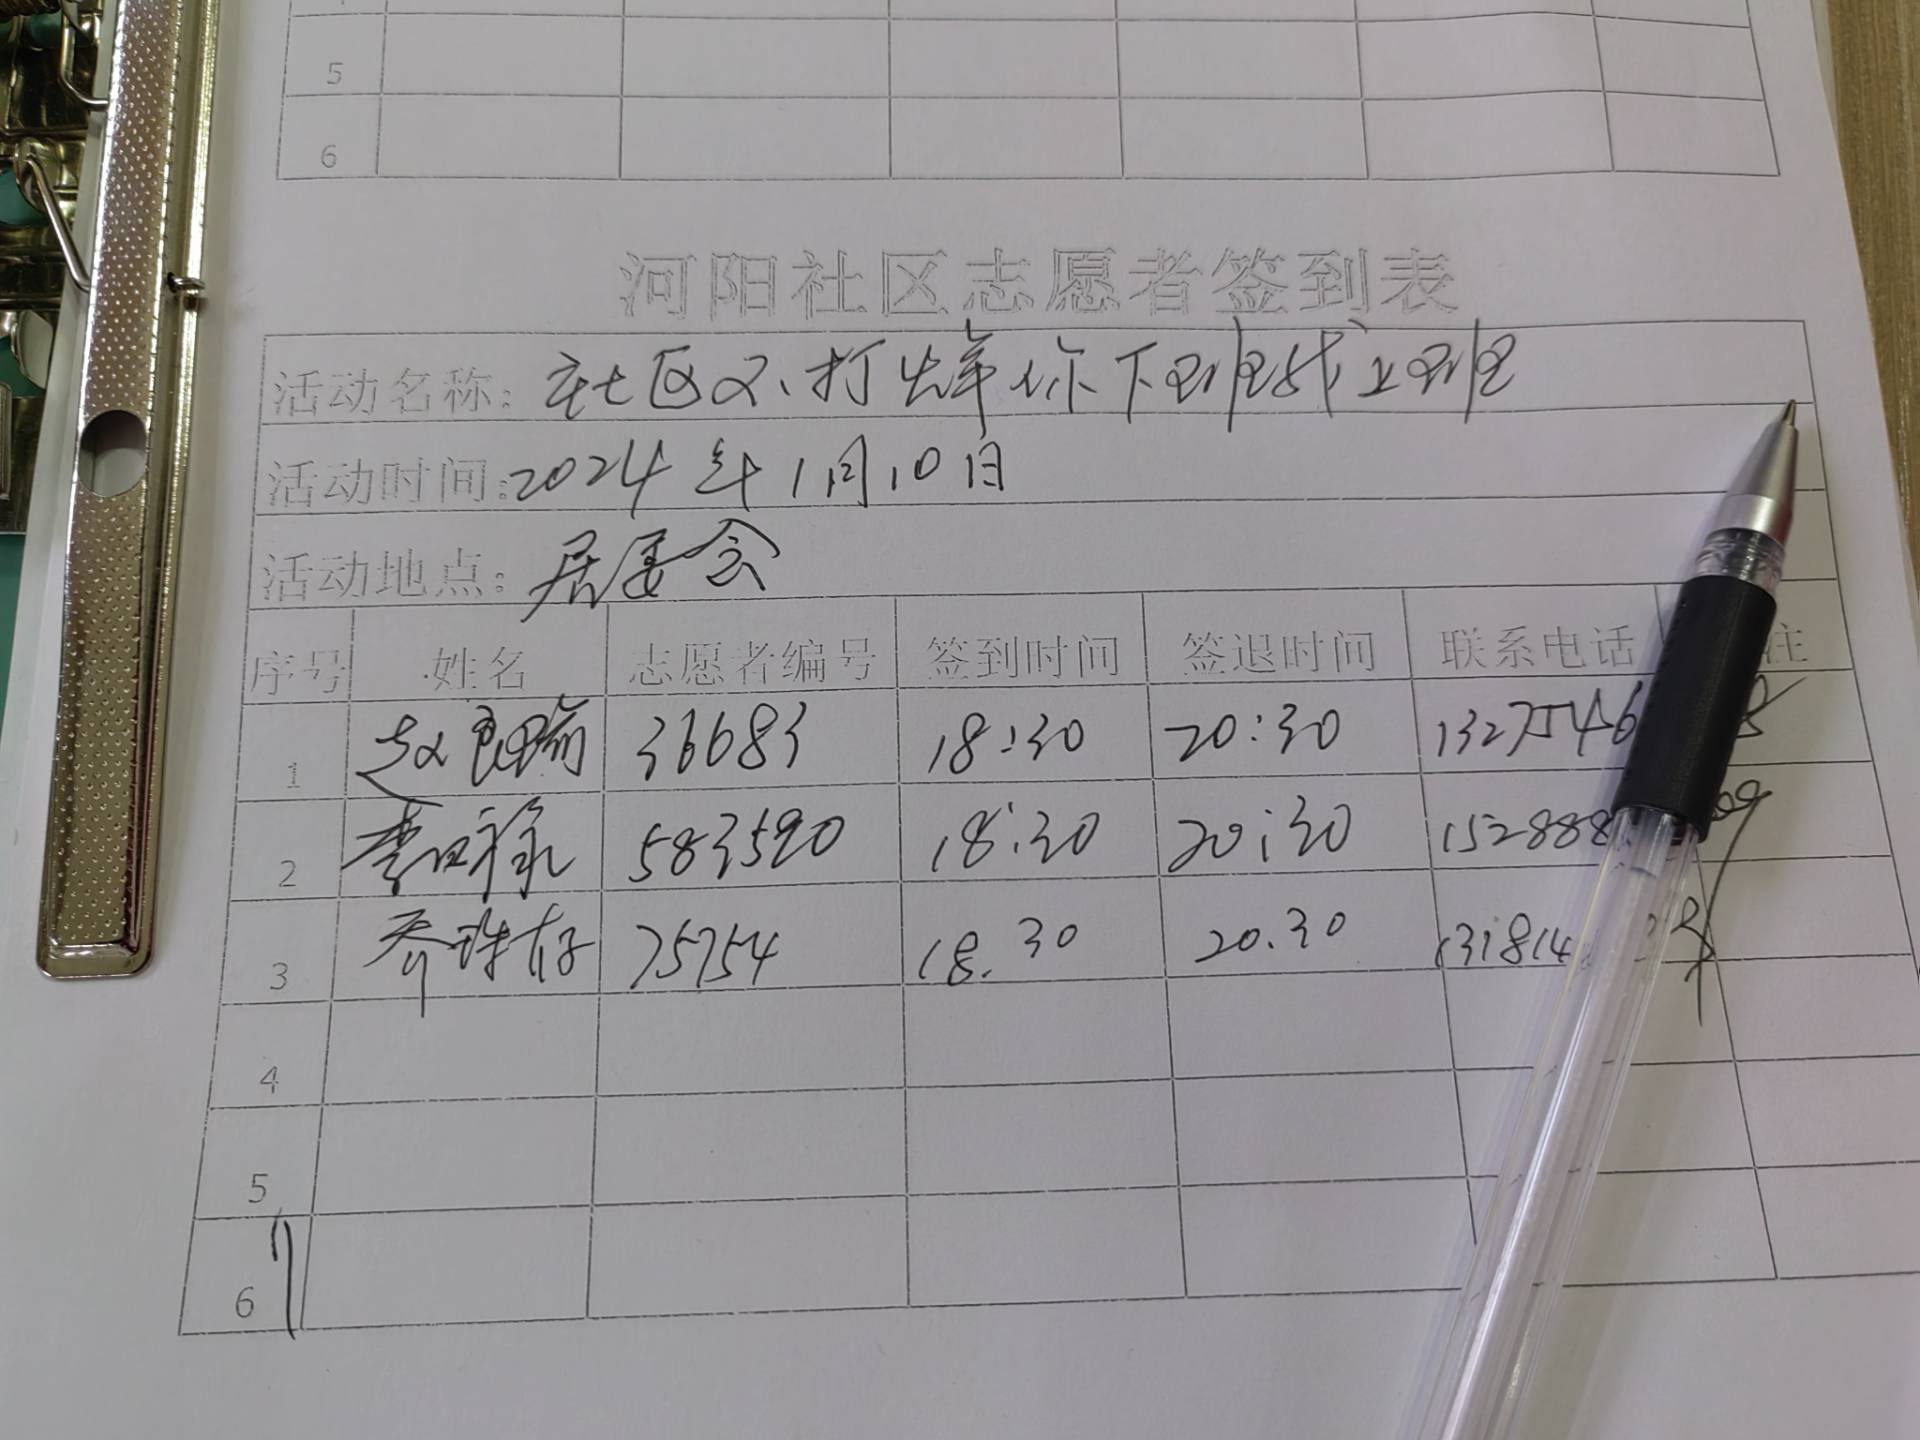 5
6
河阳社区志愿者签到表
活动名称: 社区不打烊你下班我上班
活动时间:2024年1月10日
活动地点: 居委会
序号 姓名 志愿者编号 签到时间 签退时间 联系电话 注
1 赵 36683 18:30 20:30 1327546 8
2 李 583590 18:30 20:30 152888 09
3 乔 75754 18.30 20.30 131814
4
5
6